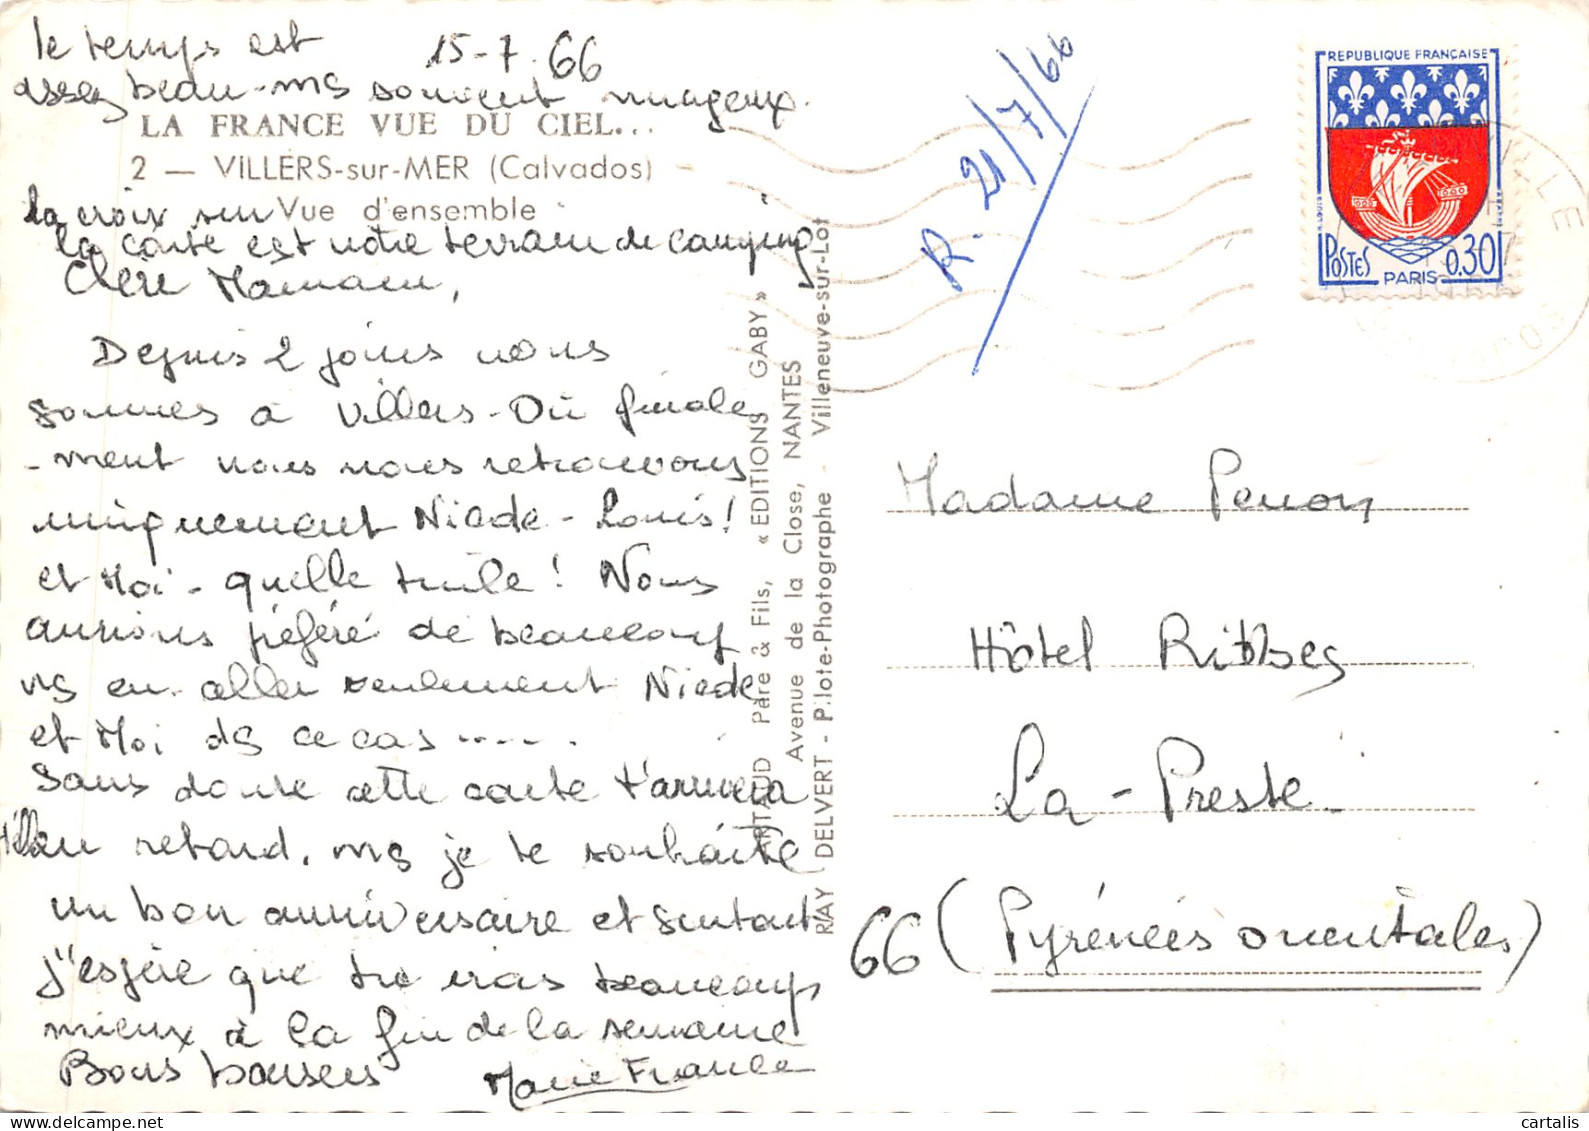 le temps est 15-7.66
assez beau - ms souvent nuageux.
LA FRANCE VUE DU CIEL...
2 — VILLERS-sur-MER (Calvados)
la croix sur Vue d'ensemble
la carte est notre terrain de camping
Chère Maman,
Depuis 2 jours nous
sommes à Villers - Où finale
- ment nous nous retrouvons
uniquement Nicole - Louis !
et Moi - quelle tuile ! Nous
aurions préféré de beaucoup
ns en aller seulement Nicole
et Moi ds ce cas .....
Sans doute cette carte t'arrivera
en retard, ms je te souhaite
un bon anniversaire et surtout
j'espère que tu iras beaucoup
mieux à la fin de la semaine
Bons baisers Marie France
ARTAUD Père & Fils, « EDITIONS GABY »
Avenue de la Close, NANTES
RAY DELVERT - Pilote-Photographe - Villeneuve-sur-Lot
R. 21/7/66
REPUBLIQUE FRANÇAISE
POSTES 0,30
PARIS
Madame Penon
Hôtel Ribbes
La - Preste -
66 (Pyrénées orientales)
cartalis